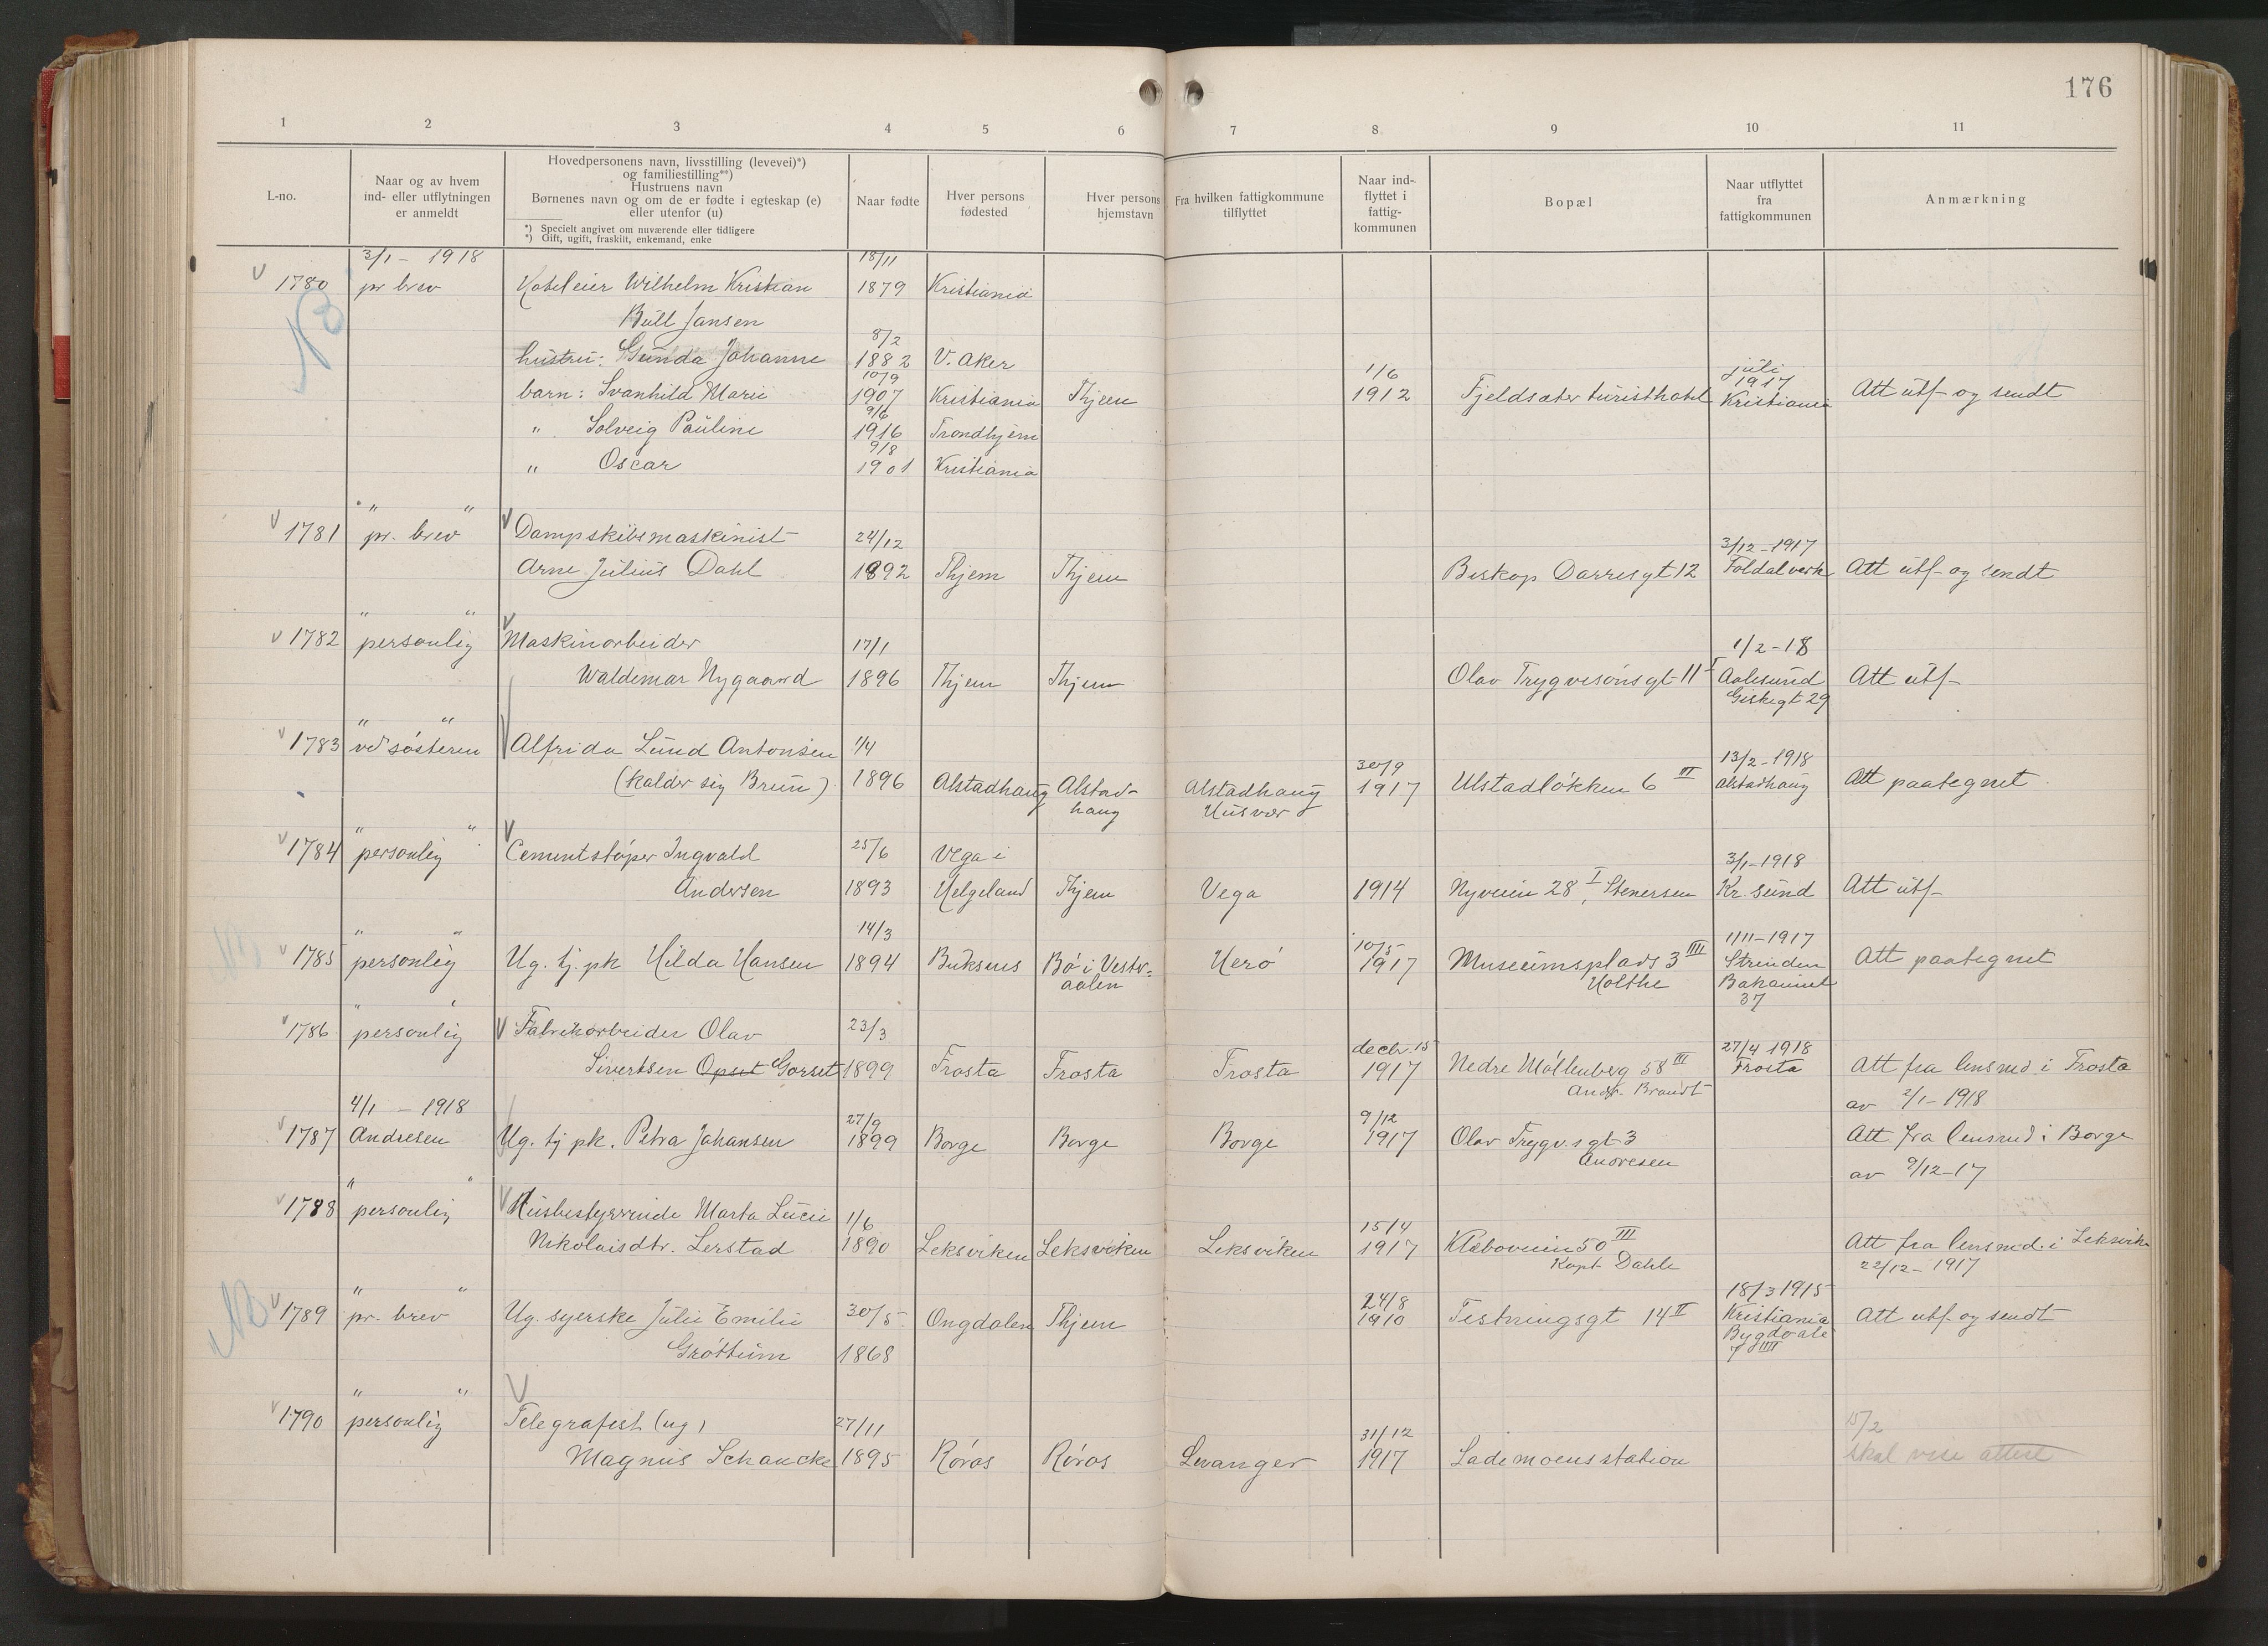 176
1 2 3 4 5 6 7 8 9 10 11
L-no.
Naar og av hvem
ind- eller utflytningen
er anmeldt
Hovedpersonens navn, livsstilling (levevei)*)
og familiestilling**)
Hustruens navn
Børnenes navn og om de er fødte i egteskap (e)
eller utenfor (u)
*) Specielt angivet om nuværende eller tidligere
*) Gift, ugift, fraskilt, enkemand, enke
Naar fødte
Hver persons
fødested
Hver persons
hjemstavn
Fra hvilken fattigkommune
tilflyttet
Naar ind-
flyttet i
fattig-
kommunen
Bopæl
Naar utflyttet
fra
fattigkommunen
Anmærkning
3/1 - 1918 18/11
V 1780 pr brev Hoteleier Wilhelm Kristian 1879 Kristiania
NB Bull Jansen
8/2
hustru: Gunda Johanne 1882 V. Aker
10/9 1/6 juli
1917
barn: Svanhild Marie 1907 Kristiania Thjem 1912 Fjeldsæter turisthotel Kristiania Att utf- og sendt
9/6
" Solveig Pauline 1916 Trondhjem
9/8
" Oscar 1901 Kristiania
" "
V 1781 pr. brev V Dampskibsmaskinist 24/12 3/12-1917
Arne Julius Dahl 1892 Thjem Thjem Biskop Darresgt 12 Foldalverk Att utf- og sendt
" "
V 1782 personlig V Maskinarbeider 17/1 1/2-18
Waldemar Nygaard 1896 Thjem Thjem Olav Trygvesønsgt 11 I Aalesund Att utf-
Giskegt 29
" "
V 1783 ved søsteren V Alfrida Lund Antonsen 1/4 30/9 13/2-1918
(kalder sig Brun) 1896 Alstadhaug Alstad- Alstadhaug 1917 Ulstadløkken 6 II Alstadhaug Att paategnet
haug Husvær
" "
V 1784 personlig V Cementstøper Ingvald 25/6 Vega i 3/1-1918
Andersen 1893 Helgeland Thjem Vega 1914 Nyveien 28 I, Stenersen Kr. sund Att utf-
" " 14/3 10/5 1/11-1917
V 1785 personlig Ug. tj. pk Hilda Hansen 1894 Buksnes Bø i Vester- Herø 1917 Museumsplads 3 III Strinden Att paategnet
aalen Holthe
37
" "
V 1786 personlig V Fabrikarbeider Olav 23/3 decbr. 15 27/4 1918
Sivertsen Opset Gorset 1899 Frosta Frosta Frosta 1917 Nedre Møllenberg 58 III Frosta Att fra lensmd. i Frosta
Andr. Brandt av 2/1-1918
4/1 - 1918 27/9 9/12
V 1787 Andresen V Ug. tj pk. Petra Johansen 1899 Borge Borge Borge 1917 Olav Trygv.s gt 3 Att fra lensmd i Borge
Andresen av 9/12-17
" "
V 1788 personlig V Husbestyrerinde Marta Lucie 1/6 15/4
Nikolaisdtr. Lerstad 1890 Leksviken Leksviken Leksviken 1917 Klæboveien 50 III Att fra lensmd. i Leksvik
Kapt Dahle 22/12-1917
" " 18/3 1915
NB V 1789 pr. brev Ug. syerske Julie Emilie 30/5 Ongdalen Thjem 24/8 1910 Festningsgt 14 II Kristiania Att utf- og sendt
Grøttum 1868 Bygdø ale
7 IIII
" "
V 1790 personlig V Telegrafist (ug) 27/11 31/12 15/2
Magnus Schancke 1895 Røros Røros Levanger 1917 Lademoens station Skal vise attest